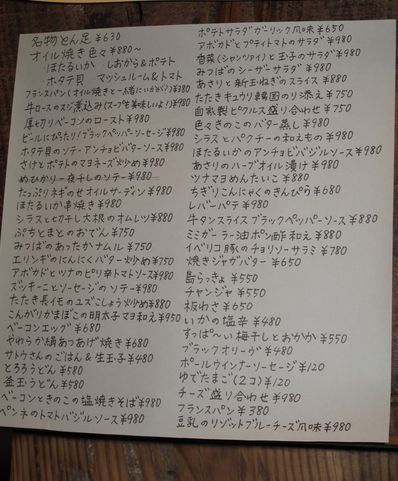 名物とん足 ¥630
オイル焼き色々 ¥880~
ほたるいか しおから&ポテト
ホタテ貝 マッシュルーム&トマト
フランスパン(オイル焼きと一緒にいかが!) ¥380
牛ロースのスジ煮込み(スープも美味しいよ!) ¥980
厚切りベーコンのロースト ¥980
ビールにぴったり!ブラックペッパーソーセージ¥980
ホタテ貝のソテーアンチョビバターソース¥980
さけとポテトのマヨネーズ炒め¥980
めひかり一夜干しのソテー¥980
たっぷりネギのせオイルサーディン ¥980
ほたるいか串焼き¥980
シラスと切干し大根のオムレツ¥880
ぷちとまとのおでん ¥750
みつばのあったかナムル ¥750
エリンギのにんにくバター炒め ¥750
アボカドとツナのピリ辛トマトソース¥980
ズッキーニとソーセージのソテー¥980
たたき長イモのユズこしょう炒め¥880
こんがりかまぼこの明太子マヨ和え¥950
ベーコンエッグ ¥680
やわらか絹あつあげ焼き ¥680
サトウさんのごはん&生玉子 ¥480
とろろうどん ¥580
釜玉うどん ¥580
ベーコンときのこの塩焼きそば¥980
ペンネのトマトバジルソース¥980
ポテトサラダガーリック風味 ¥650
アボカドとプティトマトのサラダ ¥980
香菜(シャンツァイ)と玉子のサラダ ¥980
みつばのシーザーサラダ ¥980
あさりと新玉ねぎのスライス ¥880
たたきキュウリ韓国のり添え ¥750
自家製ピクルス盛り合わせ ¥750
色々きのこのバター蒸し ¥980
シラスとパクチーの和えもの ¥980
ほたるいかのアンチョビバジルソース¥980
あさりのハーブオイル漬け ¥980
ツナマヨめんたいこ ¥880
ちぎりこんにゃくのきんぴら ¥680
レバーパテ ¥980
牛タンスライスブラックペッパーソース¥880
ミミガーラー油ポン酢和え ¥880
イベリコ豚のチョリソーサラミ ¥780
焼きジャガバター ¥650
島らっきょ ¥550
チャンジャ ¥550
板わさ ¥650
いかの塩辛 ¥480
すっぱ~い梅干しとおかか ¥550
ブラックオリーヴ ¥480
ポールウインナーソーセージ ¥120
ゆでたまご(2コ) ¥120
チーズ盛り合わせ ¥980
フランスパン ¥380
豆乳のリゾットブルーチーズ風味 ¥980